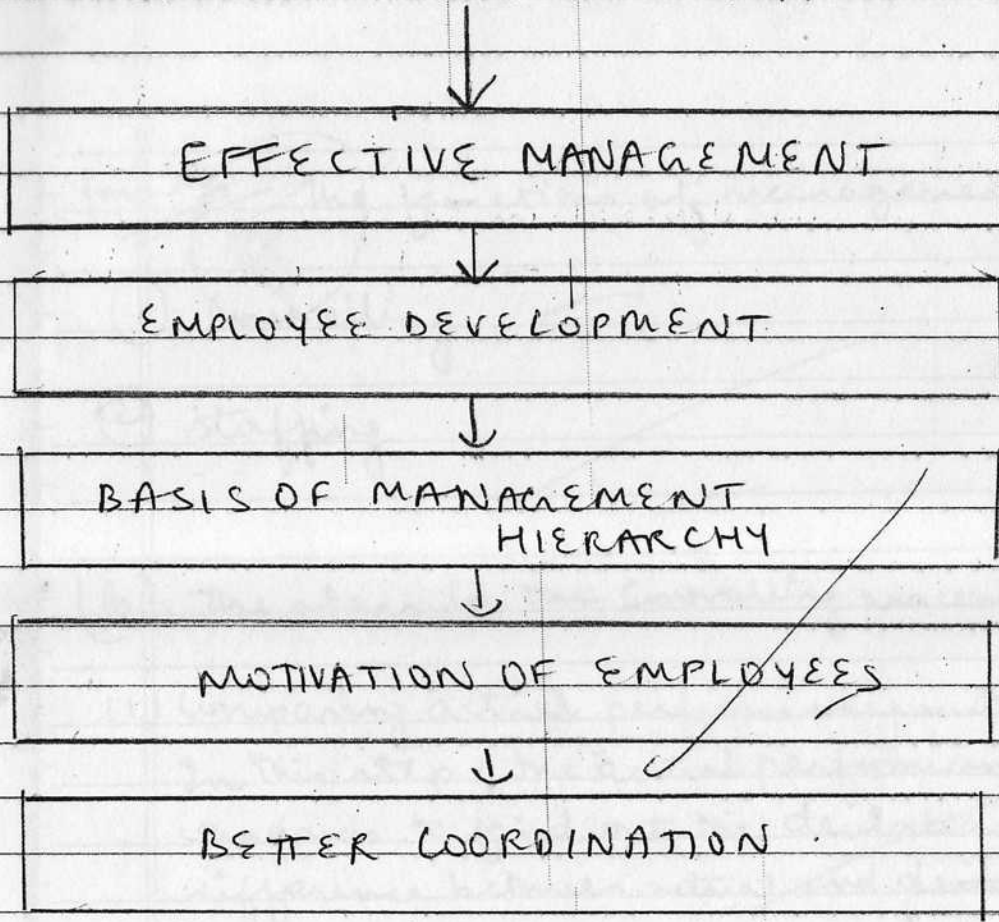 EFFECTIVE MANAGEMENT
EMPLOYEE DEVELOPMENT
BASIS OF MANAGEMENT
HIERARCHY
MOTIVATION OF EMPLOYEES
BETTER COORDINATION